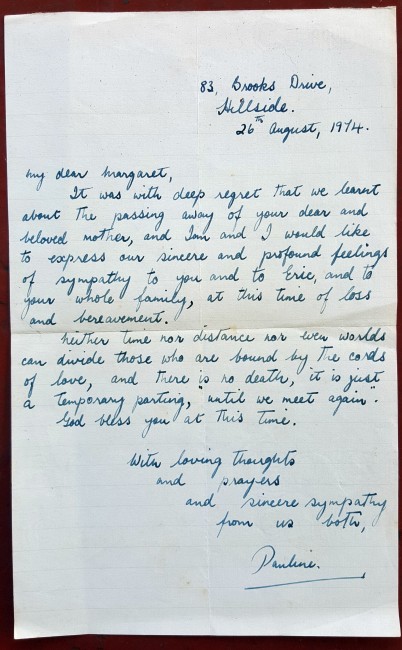 83, Brooks Drive,
Hillside.
26th August, 1974.
My dear Margaret,
It was with deep regret that we learnt
about the passing away of your dear and
beloved mother, and Ian and I would like
to express our sincere and profound feelings
of sympathy to you and to Eric, and to
your whole family, at this time of loss
and bereavement.
Neither time nor distance nor even worlds
can divide those who are bound by the cords
of love, and there is no death, it is just
a temporary parting, "until we meet again".
God bless you at this time.
With loving thoughts
and prayers
and sincere sympathy
from us both,
Pauline.